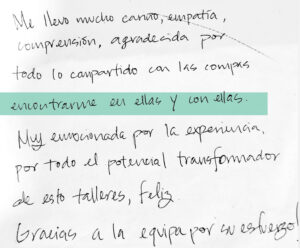 Me llevo mucho cariño, empatía,
comprensión, agradecida por
todo lo compartido con las compas
encontrarme en ellas y con ellas.
Muy emocionada por la experiencia,
por todo el potencial transformador
de esto talleres, feliz.
Gracias a la equipa por su esfuerzo!